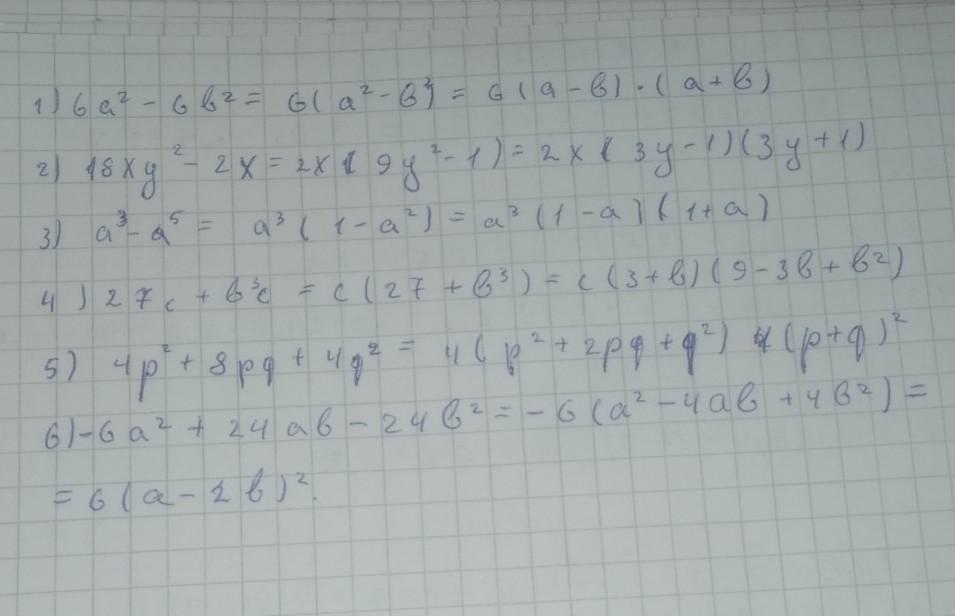 1) 6a² - 6в² = 6(a² - в²) = 6(a - в)·(a + в)
2) 18xy² - 2x = 2x(9y² - 1) = 2x(3y - 1)(3y + 1)
3) a³ - a⁵ = a³(1 - a²) = a³(1 - a)(1 + a)
4) 27c + в³c = c(27 + в³) = c(3 + в)(9 - 3в + в²)
5) 4p² + 8pq + 4q² = 4(p² + 2pq + q²) 4(p + q)²
6) -6a² + 24aв - 24в² = -6(a² - 4aв + 4в²) =
= 6(a - 2в)².